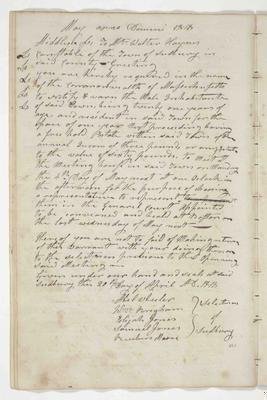 May anno Domini 1818
Middlesex Ss To Mr. Walter Haynes
Constable of the Town of Sudbury in
said County — Greeting
you are hereby required in the name
of the Commonwealth of Massachusetts
to notify & warn the Male Inhabitants
of said Town, being twenty one years of
age and resident in said Town for the
space of one year next preceeding having
a free hold Estate within said Town of the
annual income of three pounds or any Estate
to the value of sixty pounds, to meet at
the Meeting house in said Town on Monday
the 4th day of May next at one Oclock in
the afternoon for the purpose of choosing
a representative to represent
them in the General Court appointed
to be convened and held at Boston on
the last wednesday of May next —
Hereof you are not to fail & Make return
of this Warrant with your doings thereon
to the selectmen previous to the opening
said Meeting —
Given under our hand and seals at said
Sudbury this 20th day of April AD. 1818
Abel Wheeler
Selectmen
Elijah Jones
of
Samuel Jones
Sudbury